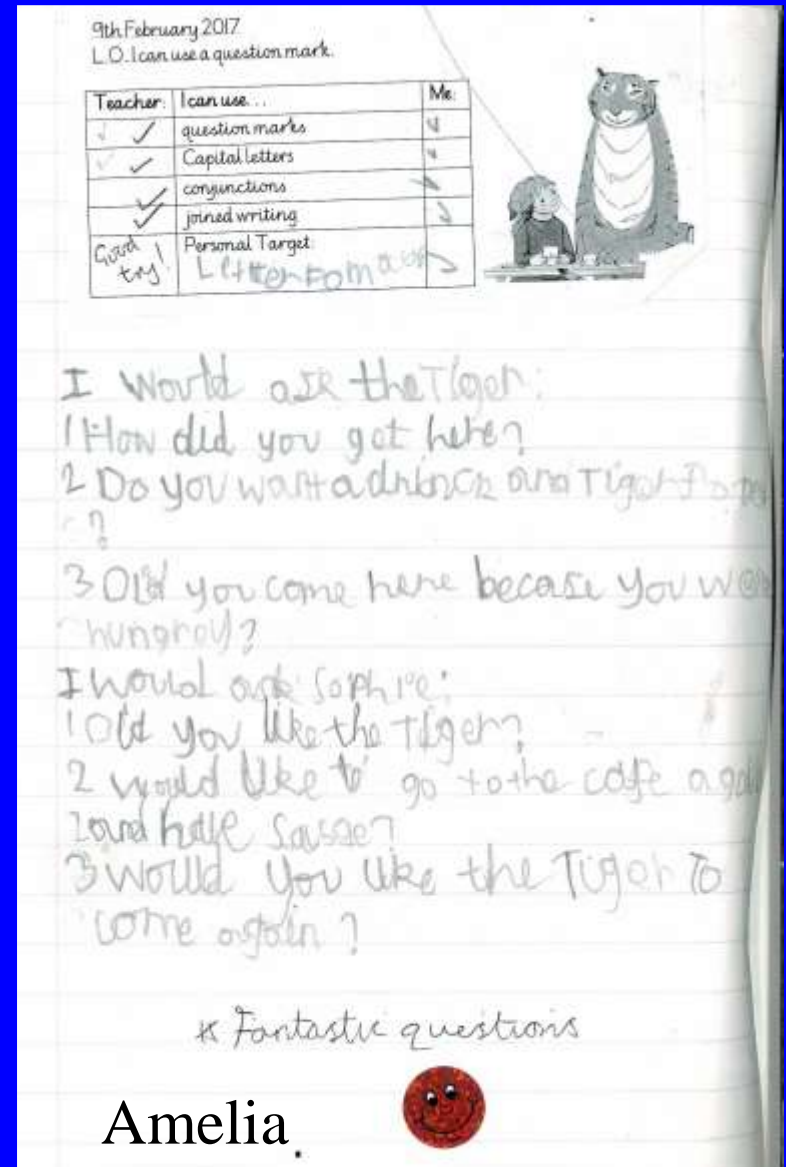 9th February 2017
L.O. I can use a question mark.
Teacher: I can use... Me:
question marks
Capital letters
conjunctions
joined writing
Good try! Personal Target:
Letter
I Would ask the Tiger:
1 How did you get here?
2 Do you want a drinck and Tiger
?
3 Did you come here becase you
hungroy?
I would ask Sophie:
1 Did you like the Tiger?
2 would like to go to the cafe
and have
3 Would you like the Tiger To
come again ?
* Fantastic questions
Amelia.